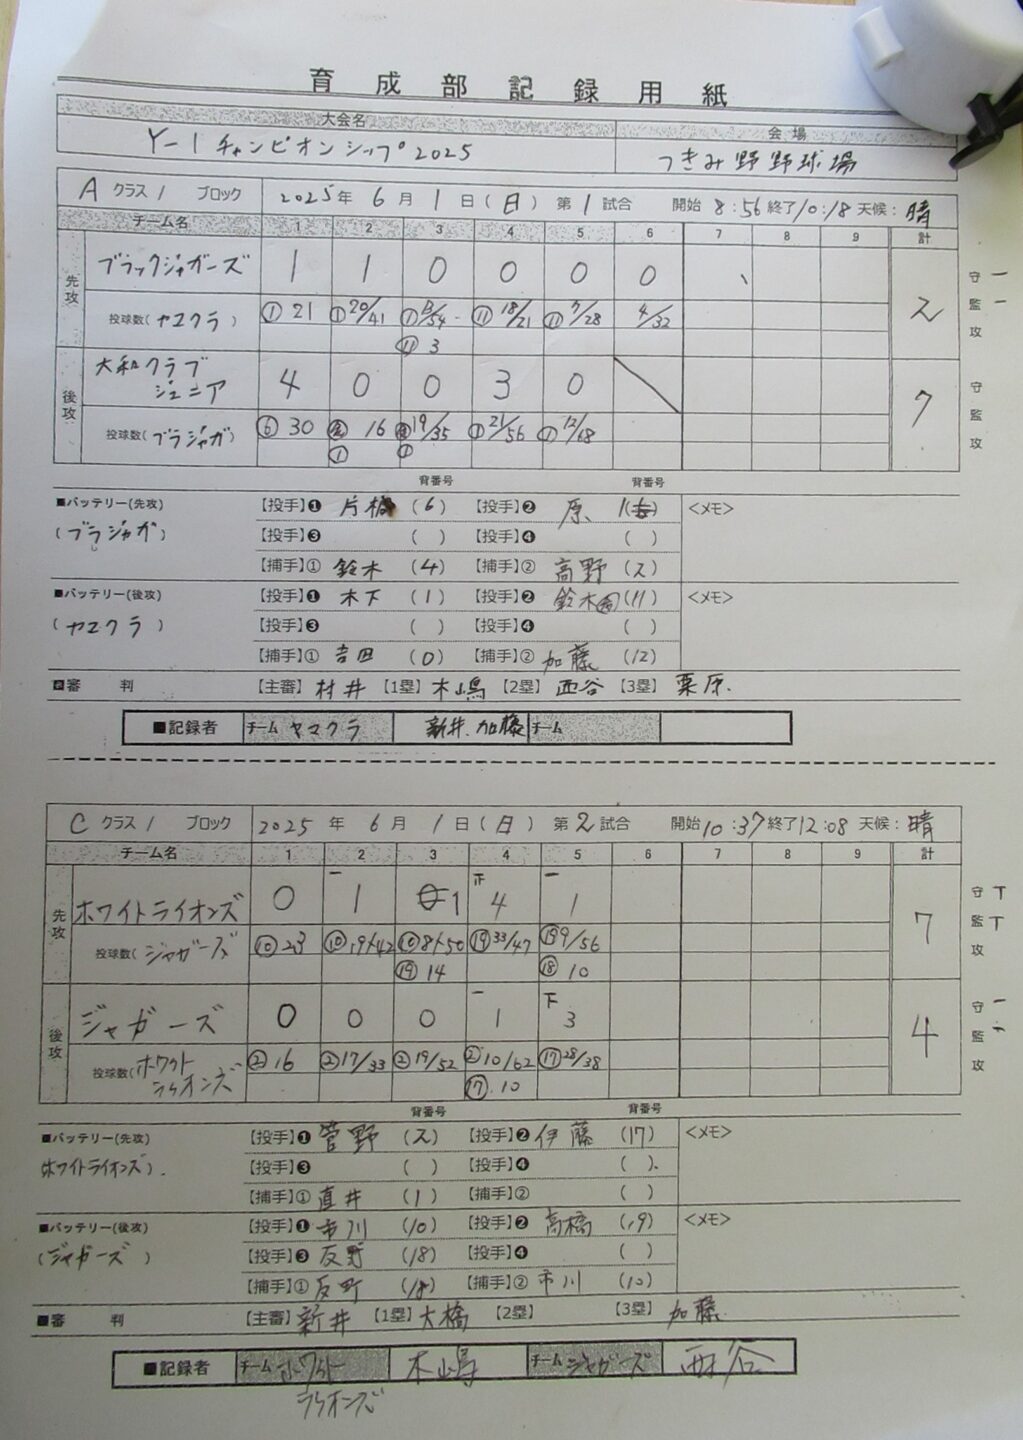 育成部記録用紙
大会名 会場
Y-1チャンピオンシップ2025 つきみ野野球場
A クラス 1 ブロック 2025年 6月 1日(日) 第 1 試合 開始 8:56 終了 10:18 天候: 晴
チーム名 1 2 3 4 5 6 7 8 9 計
先攻 ブラックジャガーズ 1 1 0 0 0 0 2 守 一 監 一 攻
投球数(ヤマクラ) ① 21 ① 20/41 ① 13/54 ⑪ 18/21 ⑪ 7/28 4/32
⑪ 3
後攻 大和クラブジュニア 4 0 0 3 0 7 守 監 攻
投球数(ブラジャガ) ⑥ 30 16 19/35 ① 21/56 ① 12/68
① ①
背番号 背番号
■バッテリー(先攻) 【投手】❶ 片板 (6) 【投手】❷ 原 1 <メモ>
(ブラジャガ) 【投手】❸ ( ) 【投手】❹ ( )
【捕手】① 鈴木 (4) 【捕手】② 高野 (2)
■バッテリー(後攻) 【投手】❶ 木下 (1) 【投手】❷ 鈴木 (11) <メモ>
(ヤマクラ) 【投手】❸ ( ) 【投手】❹ ( )
【捕手】① 吉田 (0) 【捕手】② 加藤 (12)
審判 【主審】 村井 【1塁】 木嶋 【2塁】 西谷 【3塁】 栗原.
■記録者 チーム ヤマクラ 新井.加藤 チーム
C クラス 1 ブロック 2025年 6月 1日(日) 第 2 試合 開始 10:37 終了 12:08 天候: 晴
チーム名 1 2 3 4 5 6 7 8 9 計
先攻 ホワイトライオンズ 0 1 1 4 1 7 守 T 監 T 攻
投球数(ジャガーズ) ⑩ 23 ⑩ 19/42 ⑩ 8/50 ⑲ 33/47 ⑲ 9/56
⑲ 14 ⑱ 10
後攻 ジャガーズ 0 0 0 1 3 4 守 一 監 一 攻
投球数(ホワイトライオンズ) ② 16 ② 17/33 ② 19/52 ② 10/62 ⑰ 28/38
⑰ 10
背番号 背番号
■バッテリー(先攻) 【投手】❶ 菅野 (2) 【投手】❷ 伊藤 (17) <メモ>
(ホワイトライオンズ) 【投手】❸ ( ) 【投手】❹ ( )
【捕手】① 直井 (1) 【捕手】② ( )
■バッテリー(後攻) 【投手】❶ 市川 (10) 【投手】❷ 高橋 (19) <メモ>
(ジャガーズ) 【投手】❸ 反町 (18) 【投手】❹ ( )
【捕手】① 反町 (18) 【捕手】② 市川 (10)
■審判 【主審】 新井 【1塁】 大橋 【2塁】 【3塁】 加藤
■記録者 チーム ホワイトライオンズ 木嶋 チーム ジャガーズ 西谷